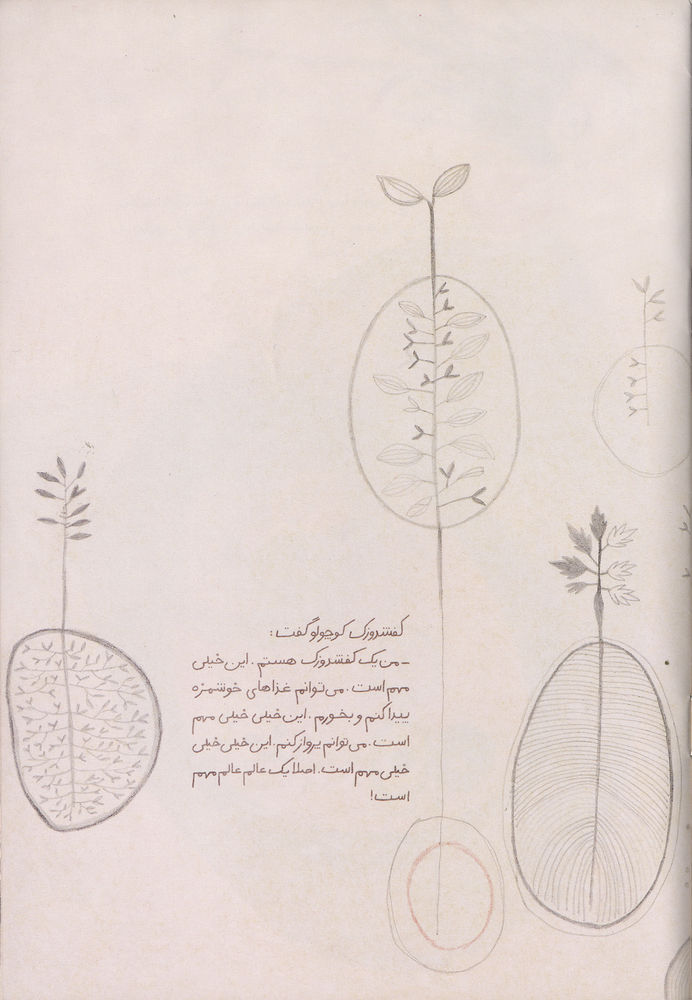 کفشدوزک کوچولو گفت:
_ من یک کفشدوزک هستم. این خیلی
مهم است. می‌توانم غذاهای خوشمزه
پیدا کنم و بخورم. این خیلی خیلی مهم
است. می‌توانم پرواز کنم. این خیلی خیلی
خیلی مهم است. اصلا یک عالم عالم مهم
است!